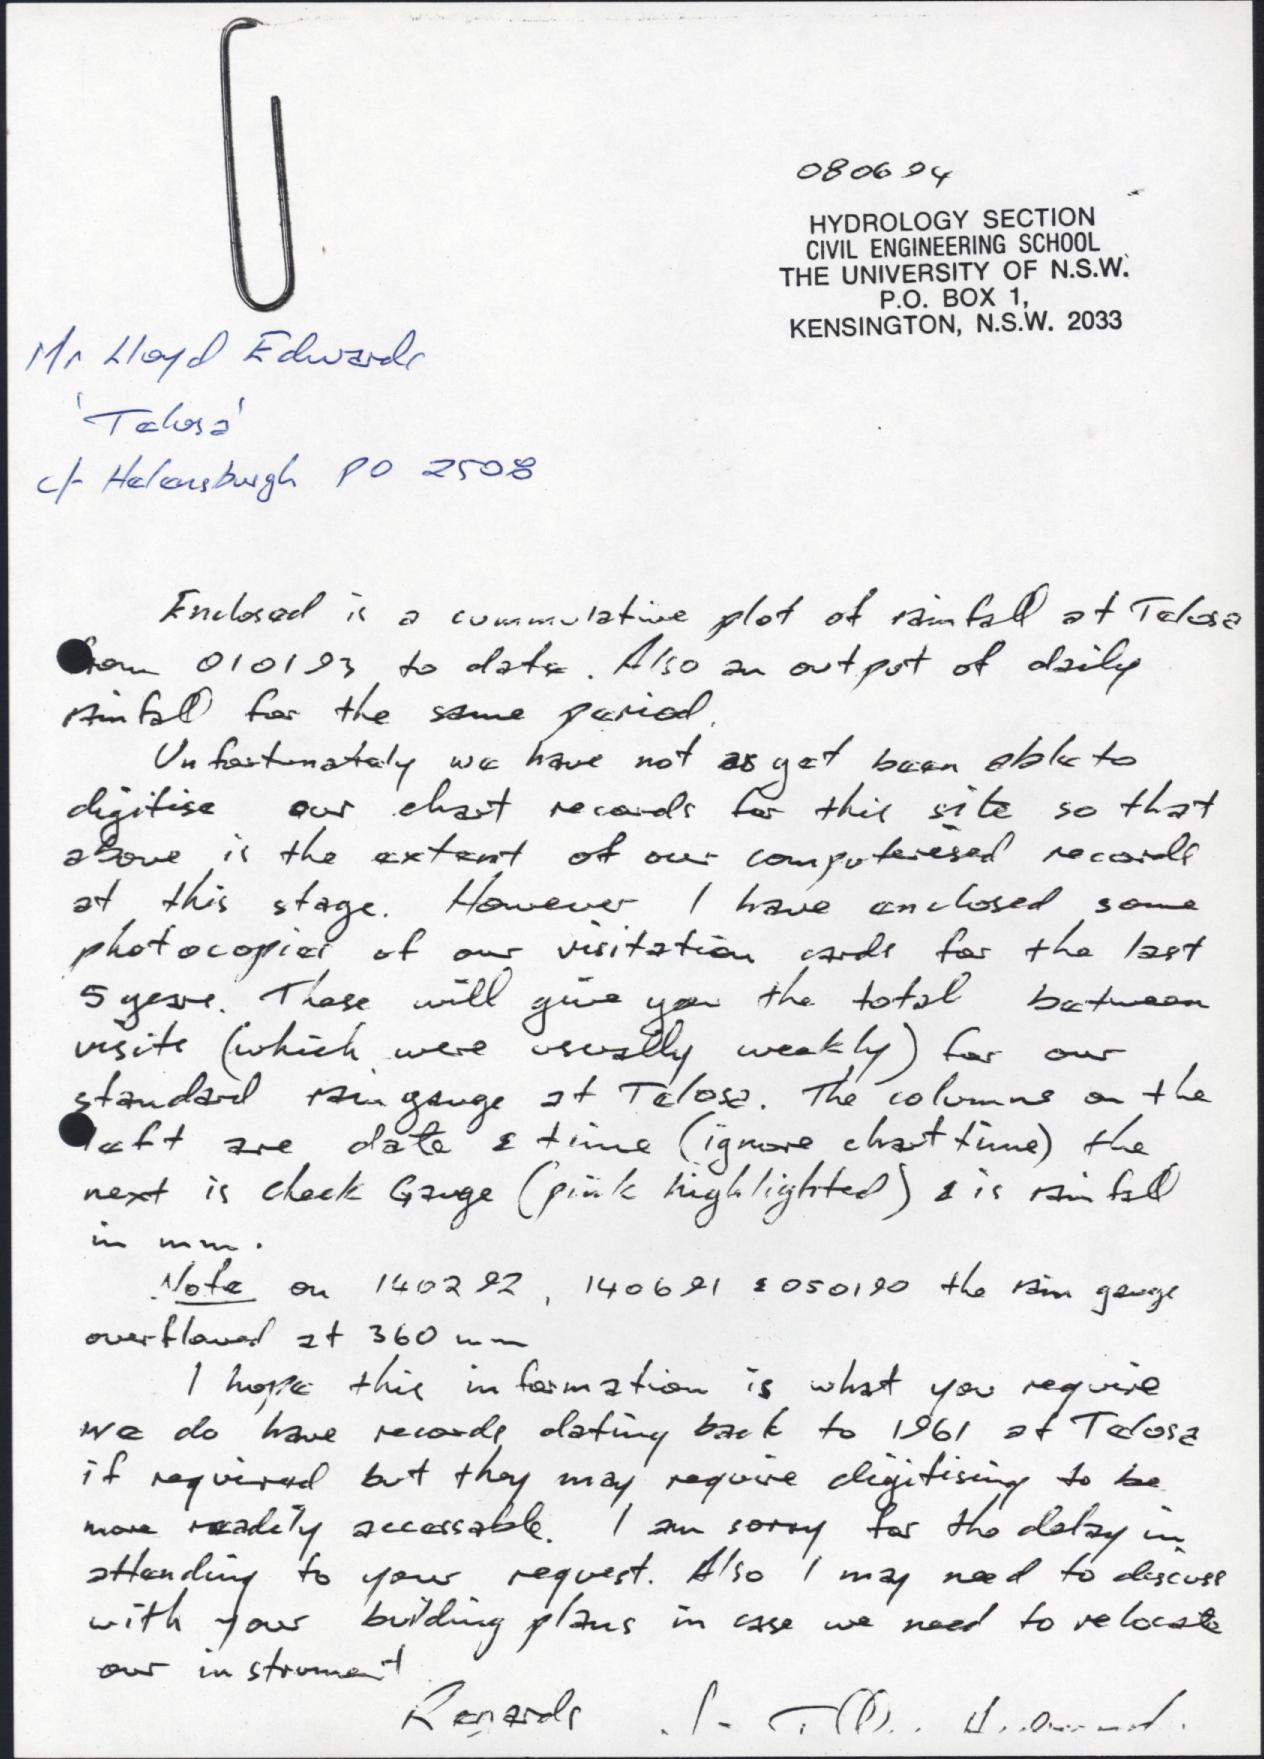 080694
HYDROLOGY SECTION
CIVIL ENGINEERING SCHOOL
THE UNIVERSITY OF N.S.W.
P.O. BOX 1,
KENSINGTON, N.S.W. 2033
Mr Lloyd Edwards
'Telosa'
c/- Helensburgh PO 2508
Enclosed is a cummulative plot of rainfall at Telosa
from 010193 to date. Also an output of daily
rainfall for the same period.
Unfortunately we have not as yet been able to
digitise our chart records for this site so that
above is the extent of our computeresed records
at this stage. However I have enclosed some
photocopies of our visitation cards for the last
5 years. These will give you the total between
visits (which were usually weekly) for our
standard rain gauge at Telosa. The columns on the
left are date & time (ignore chart time) the
next is check Gauge (pink highlighted) & is rainfall
in mm.
Note on 140292, 140691 & 050190 the rain gauge
overflowed at 360 mm
I hope this information is what you require
we do have records dating back to 1961 at Telosa
if required but they may require digitising to be
more readily accessable. I am sorry for the delay in
attending to your request. Also I may need to discuss
with your building plans in case we need to relocate
our instrument
Regards